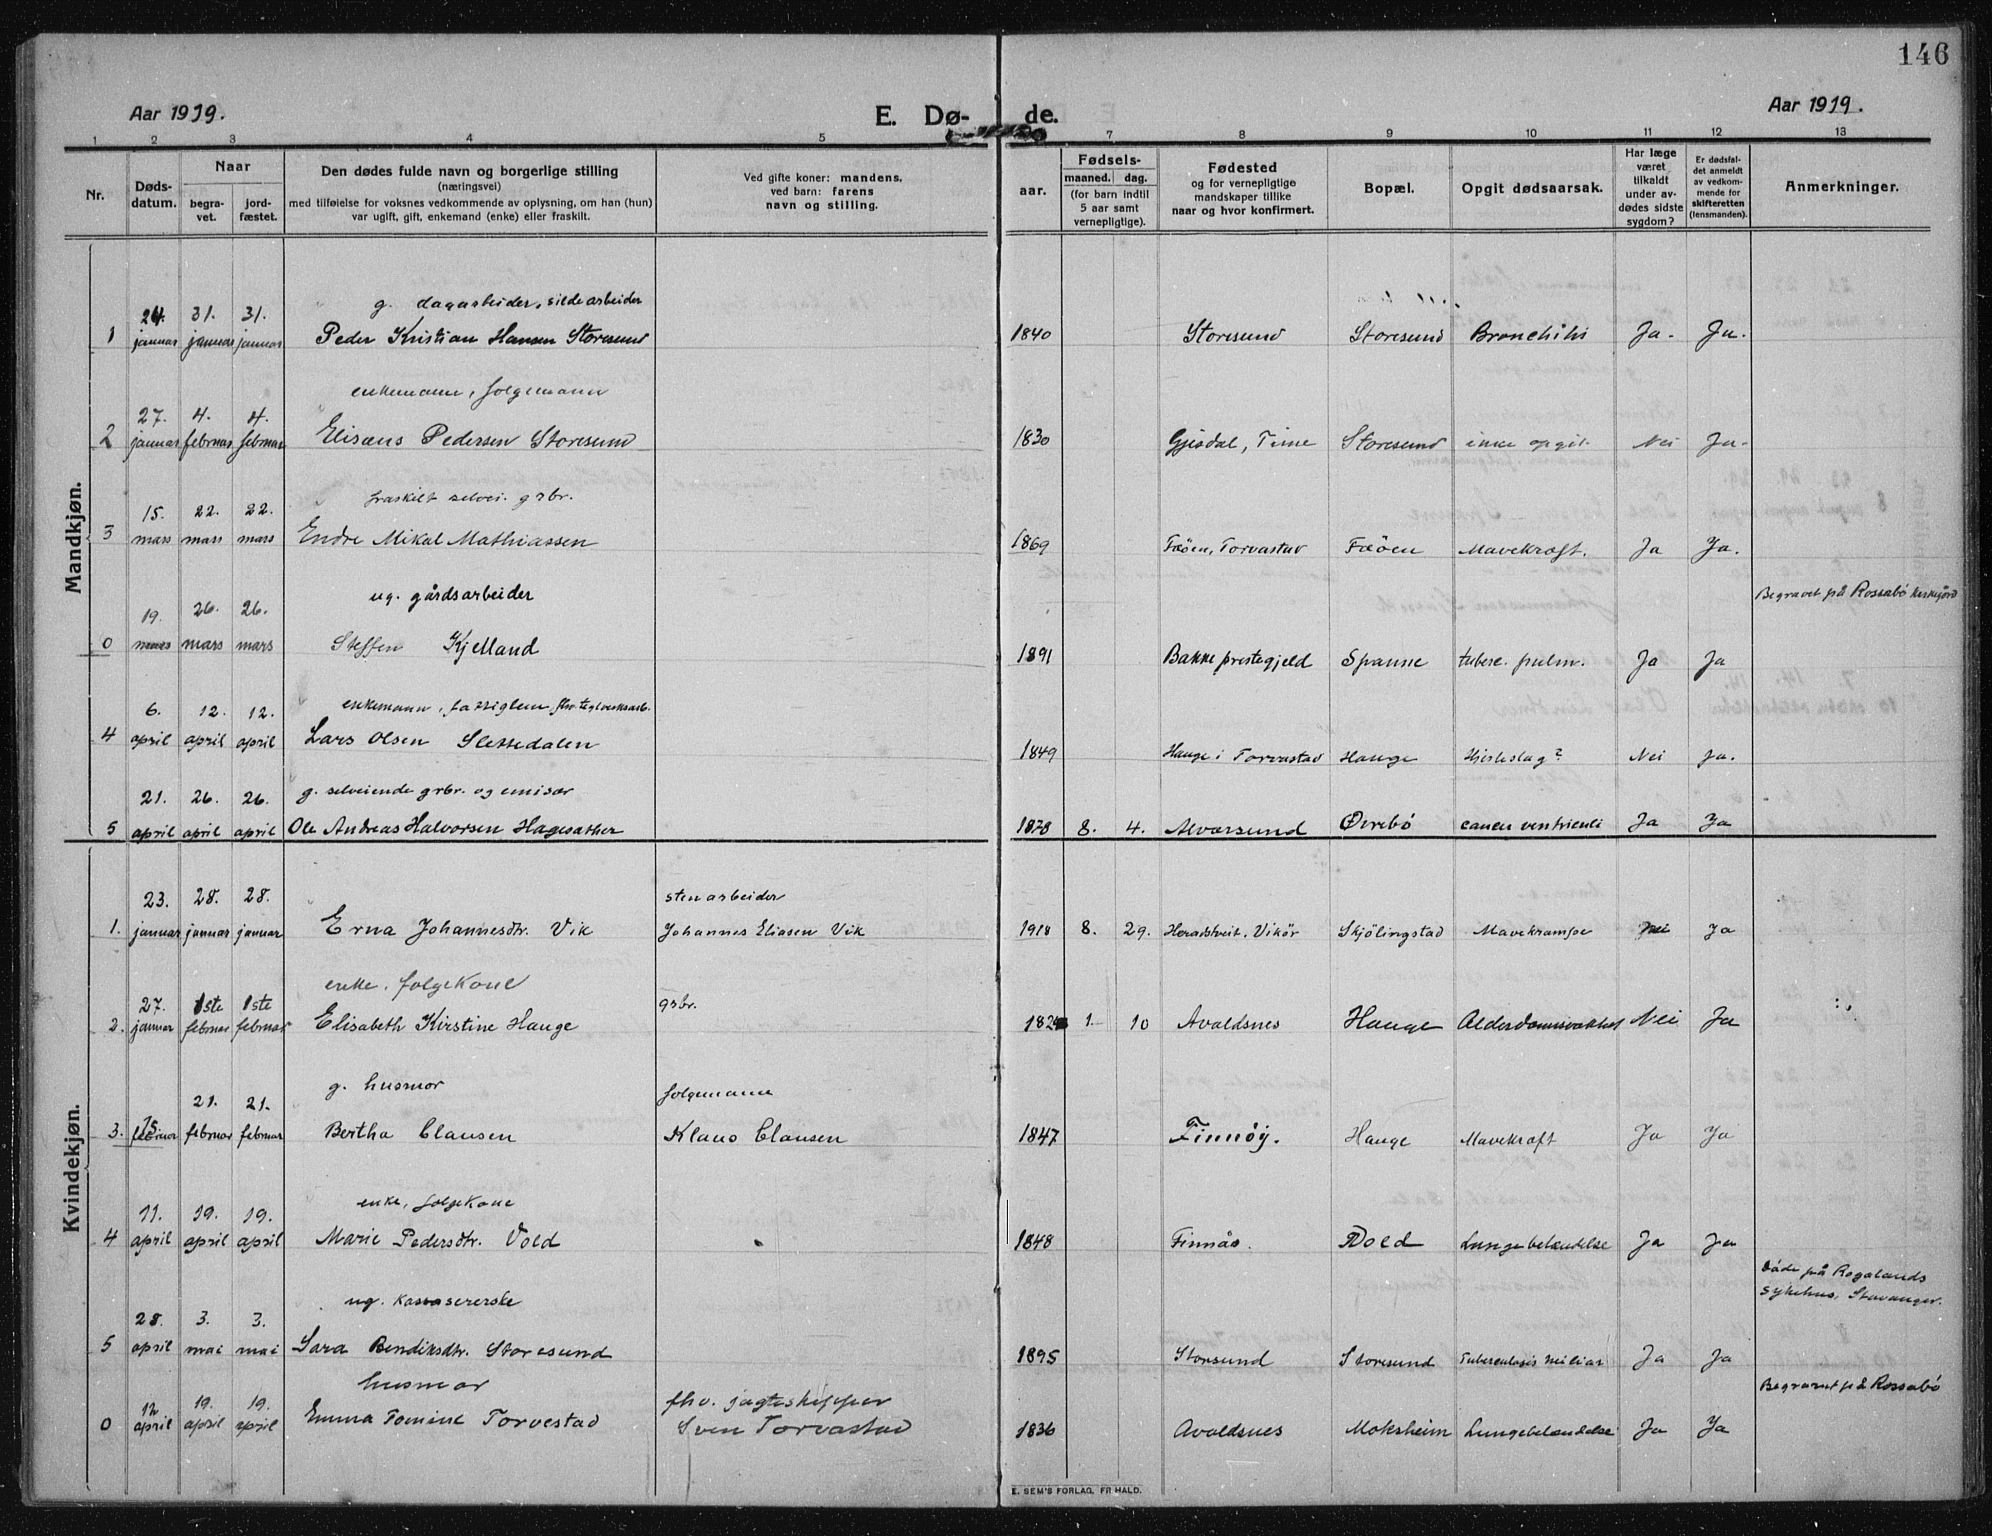 146
Aar 1919.
E. Dø-
de.
Aar 1919.
1 2 3 4 5 7 8 9 10 11 12 13
Nr.
Døds-
datum.
Naar
begra-
vet.
jord-
fæstet.
Den dødes fulde navn og borgerlige stilling
(næringsvei)
med tilføielse for voksnes vedkommende av oplysning, om han (hun)
var ugift, gift, enkemand (enke) eller fraskilt.
Ved gifte koner: mandens,
ved barn: farens
navn og stilling.
aar.
Fødsels-
maaned. dag.
(for barn indtil
5 aar samt
vernepligtige).
Fødested
og for vernepligtige
mandskaper tillike
naar og hvor konfirmert.
Bopæl.
Opgit dødsaarsak.
Har læge
været
tilkaldt
under av-
dødes sidste
sygdom?
Er dødsfal-
det anmeldt
av vedkom-
mende for
skifteretten
(lensmanden).
Anmerkninger.
Mandkjøn.
g. dagarbeider, sildearbeider
24. 31. 31.
1 januar januar januar Peder Kristian Hansen Storesund 1840 Storesund Storesund Bronchitis Ja. Ja.
enkemann, folgemann
27. 4. 4.
2 januar februar februar Elisæus Pedersen Storesund 1830 Gjesdal, Time Storesund ikke opgit. Nei Ja.
fraskilt selvei. grbr.
15. 22. 22.
3 mars mars mars Endre Mikal Mathiassen 1869 Fæøen, Torvastad Fæøen Mavekræft. Ja Ja.
ug. gårdsarbeider
Begravet på Rossabø kirkegård
19. 26. 26.
0 mars mars mars Steffen Kjelland 1891 Bakke prestegjeld Spanne tuberc. pulm. Ja Ja
enkemann, fattiglem, fhv. teglverksarb.
6. 12. 12.
4 april april april Lars Olsen Slettedalen 1849 Hauge i Torvastad Hauge Hjerteslag? Nei Ja.
g. selveiende grbr. og emisær
21. 26. 26.
5 april april april Ole Andreas Halvorsen Hagesæther 1878 8. 4. Alværsund Øvrebø cancer ventriculi Ja Ja
Kvindekjøn.
23. 28. 28. stenarbeider
1. januar januar januar Erna Johannesdtr. Vik Johannes Eliasen Vik 1918 8. 29. Heradstveit, Vikør Skjølingstad Mavekrampe Nei Ja
enke, folgekone
27. 1ste 1ste grbr.
2. januar februar februar Elisabeth Kirstine Hauge 1824 1. 10 Avaldsnes Hauge Alderdomsvakhet Nei Ja
g. husmor folgemann
15. 21. 21.
3. februar februar februar Bertha Clausen Klaus Clausen 1847 Finnøy. Hauge Mavekræft Ja Ja
enke, folgekone
11. 19. 19.
4 april april april Marie Pedersdtr. Vold 1848 Finnås. Vold Lungebetændelse Ja Ja
Døde på Rogalands
sykehus, Stavanger.
ug. kassererske
28. 3. 3.
5 april mai mai Sara Bendiksdtr. Storesund 1895 Storesund Storesund Tuberculosis miliar Ja Ja
husmor
Begravet på Rossabø
12 19. 19. fhv. jagteskipper
0 april april april Emma Tomine Torvestad Sven Torvastad 1836 Avaldsnes Moksheim Lungebetændelse Ja Ja
E. SEM'S FORLAG, FR HALD.